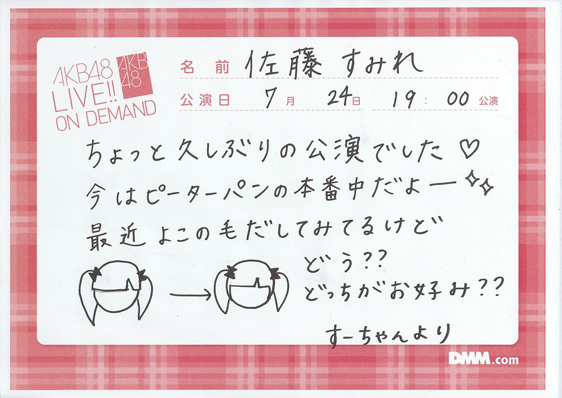 AKB48
LIVE!!
ON DEMAND
AKB
48
名前 佐藤 すみれ
公演日 7月 24日 19:00 公演
ちょっと久しぶりの公演でした♡
今はピーターパンの本番中だよー✧✧
最近よこの毛だしてみてるけど
どう??
どっちがお好み??
すーちゃんより
DMM.com